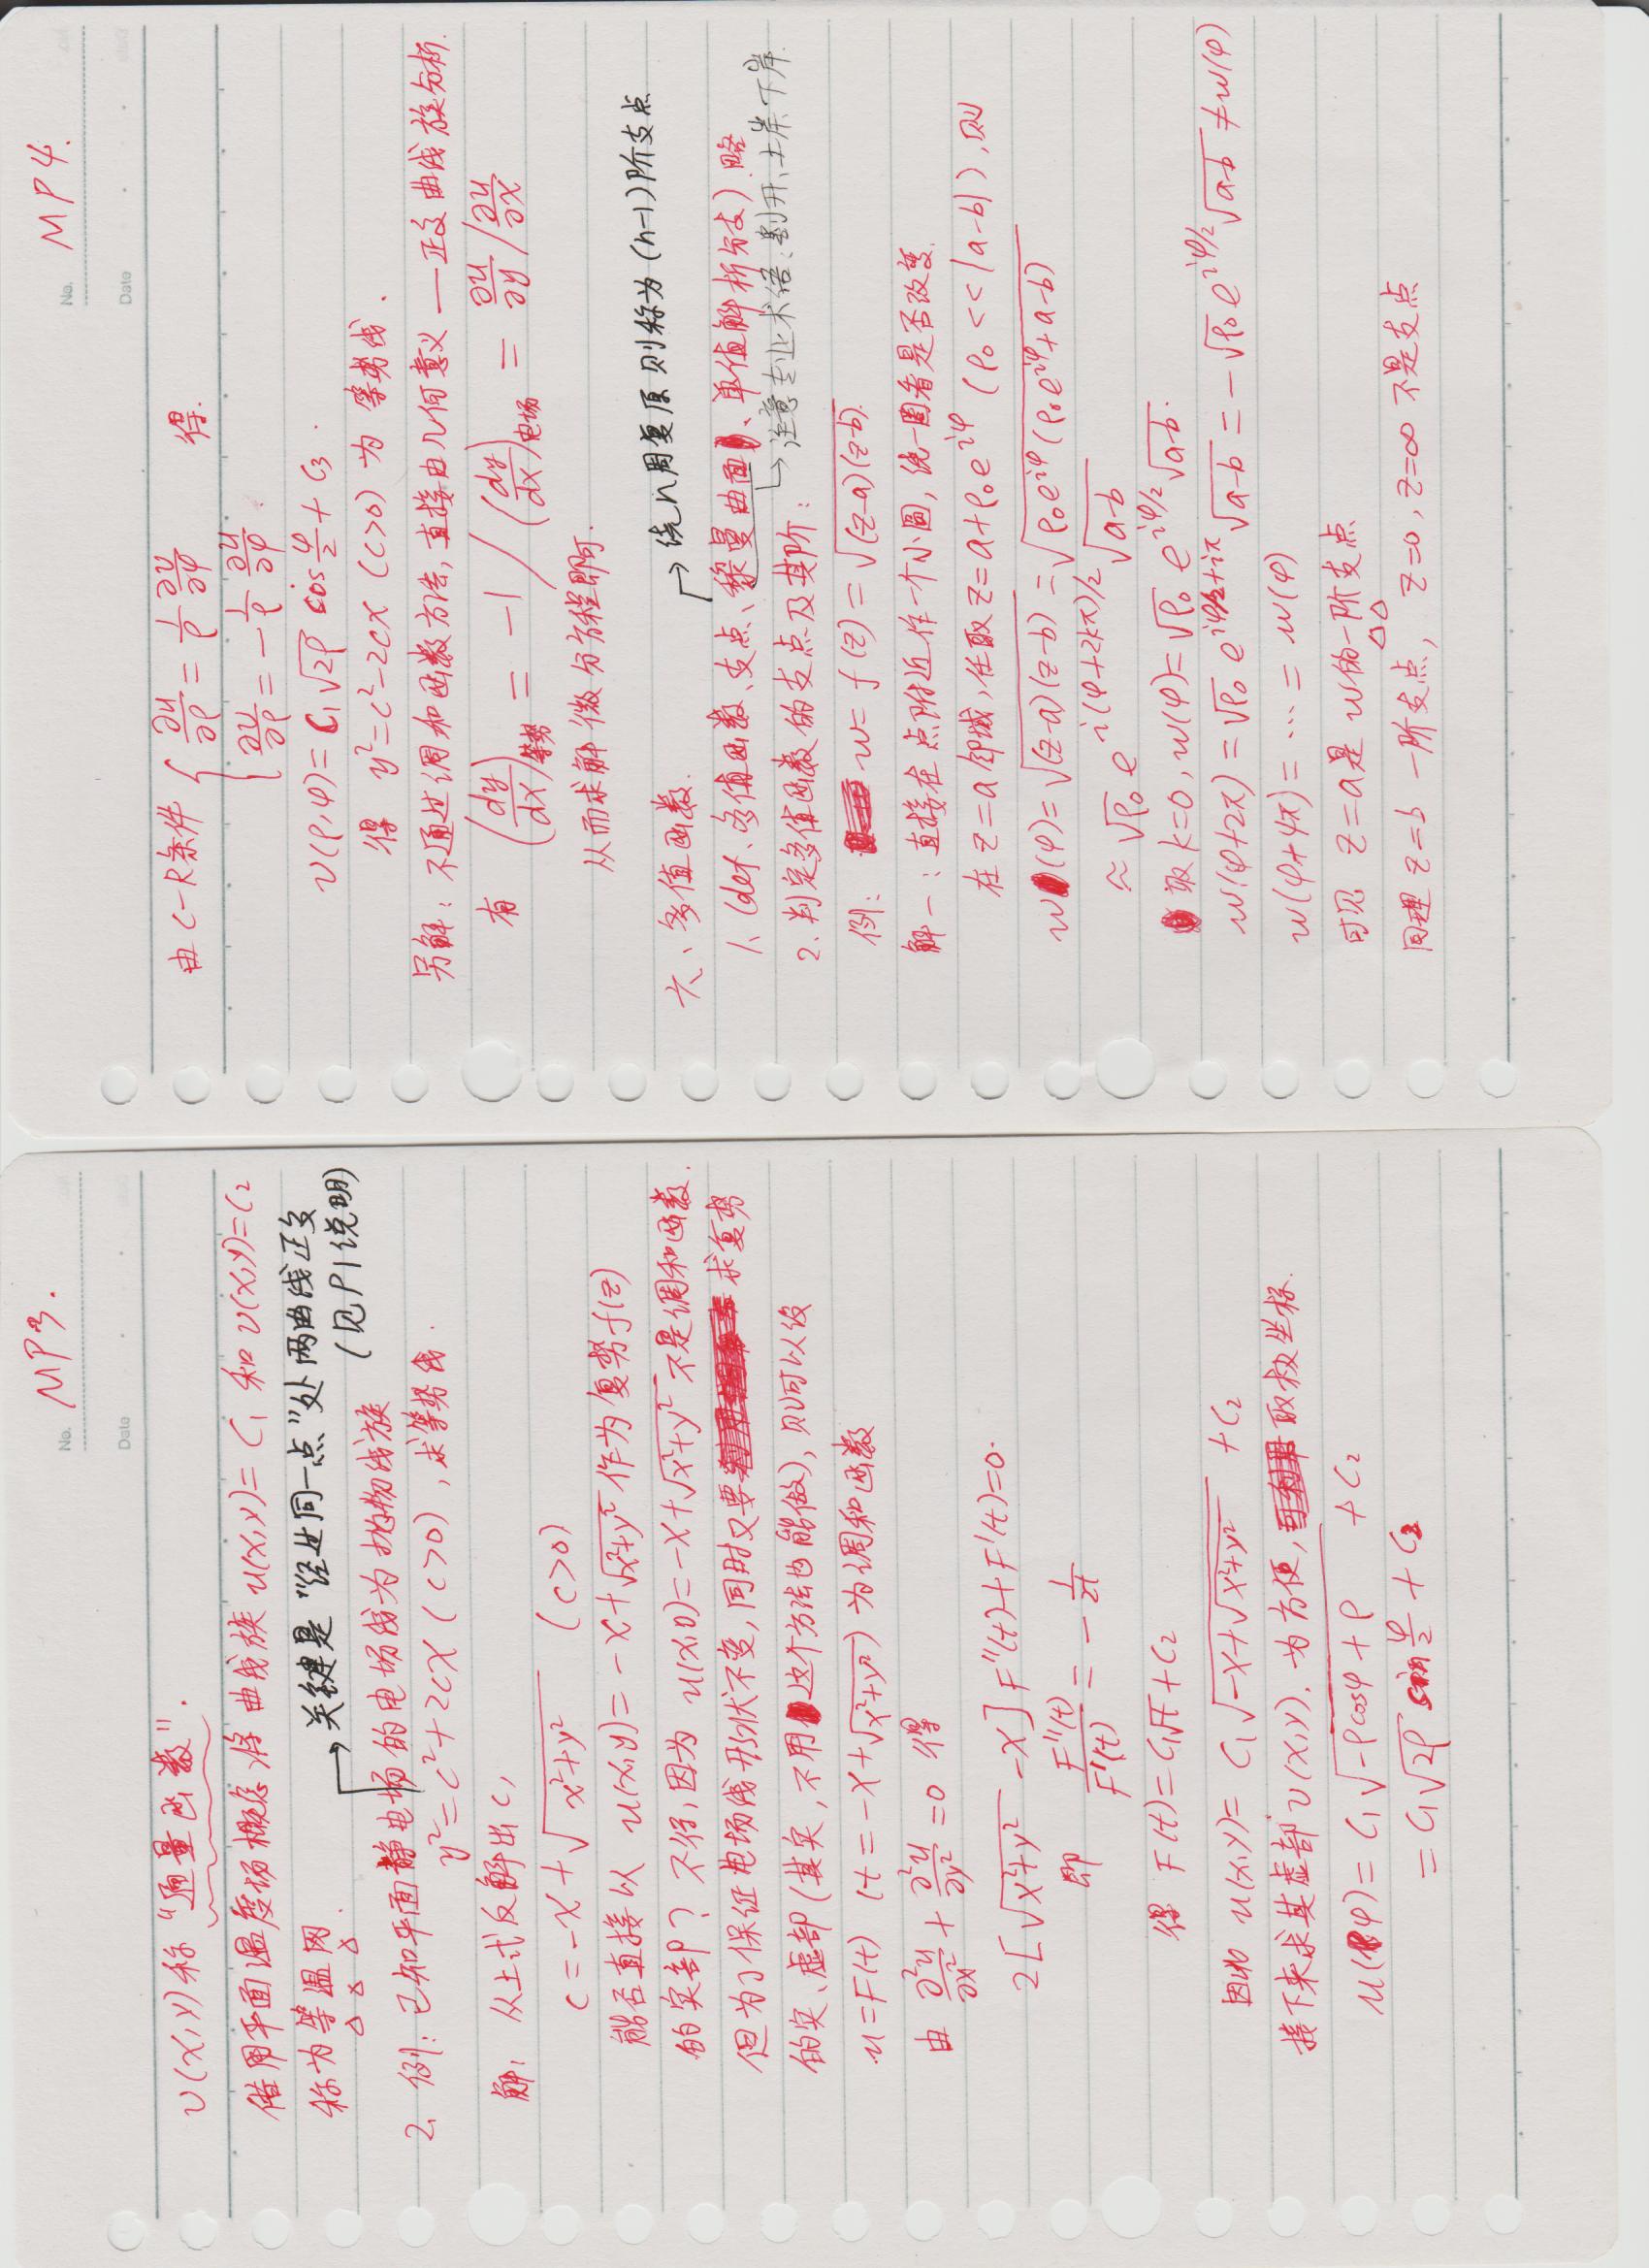 No. MP3.
Date
v(x,y)称“通量函数”.
借用平面温度场概念,将曲线族 u(x,y)=C₁ 和 v(x,y)=C₂
称为等温网.
→ 关键是“经过同一点”处两曲线正交
(见P1说明)
2. 例: 已知平面静电场的电场线为抛物线族
y²=c²+2cx (c>0), 求等势线.
解: 从上式反解出c,
c=-x+√(x²+y²) (c>0)
能否直接以 u(x,y)=-x+√(x²+y²) 作为复势f(z)
的实部? 不行,因为 u(x,0)=-x+√(x²+y²) 不是调和函数.
但为了保证电场线形状不变, 同时又要求复势
的实、虚部(其实, 不用这个方法也能做), 则可以设
u=F(t) (t=-x+√(x²+y²)) 为调和函数
由 ∂²u/∂x² + ∂²u/∂y² =0 得
2[√(x²+y²) -x]F''(t)+F'(t)=0.
即 F''(t)/F'(t) = - 1/2t
得 F(t)=C₁√t+C₂
因此 u(x,y)= C₁√(-x+√(x²+y²)) +C₂
接下来求其虚部v(x,y). 为方便, 取极坐标.
u(ρφ)= C₁√(-ρcosφ+ρ) +C₂
=C₁√(2ρ) sin φ/2 + C₂
No. MP4.
Date
由C-R条件 { ∂u/∂ρ = 1/ρ ∂v/∂φ 得.
∂v/∂ρ = - 1/ρ ∂u/∂φ.
v(ρ,φ)= C₁√(2ρ) cos φ/2 + C₃.
得 y²=c²-2cx (c>0) 为 等势线.
另解: 不通过调和函数方法, 直接由几何意义 — 正交曲线族分析.
有 (dy/dx)等势 = -1 / (dy/dx)电场 = ∂u/∂y / ∂u/∂x
从而求解微分方程即可.
→ 绕n周复原则称为(n-1)阶支点
六、多值函数.
1. (def、多值函数、支点、黎曼曲面、单值解析分支) 略
→ 注意专业术语:割开、上岸、下岸.
2. 判定多值函数的支点及其阶:
例: w= f(z) = √((z-a)(z-b)).
解一: 直接在点附近作一个小圆, 绕一圈看是否改变.
在z=a邻域, 任取z=a+ρ₀e^{iφ} (ρ₀<<|a-b|), 则
w(φ)=√((z-a)(z-b)) =√(ρ₀e^{iφ}(ρ₀e^{iφ}+a-b))
≈ √ρ₀ e^{i(φ+2kπ)/2} √(a-b)
取k=0, w(φ)=√ρ₀ e^{iφ/2} √(a-b).
w(φ+2π) = √ρ₀ e^{iφ/2+iπ} √(a-b) = -√ρ₀ e^{iφ/2} √(a-b) ≠w(φ)
w(φ+4π)= ⋯ = w(φ)
可见 z=a是w的一阶支点
同理 z=b 一阶支点, z=0, z=∞ 不是支点